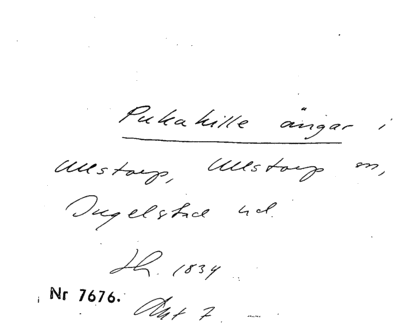 Pukahille ängar i
Ullstorp, Ullstorp sn,
Ingelstad hd.
Lh. 1834
Nr 7676.
Akt 7